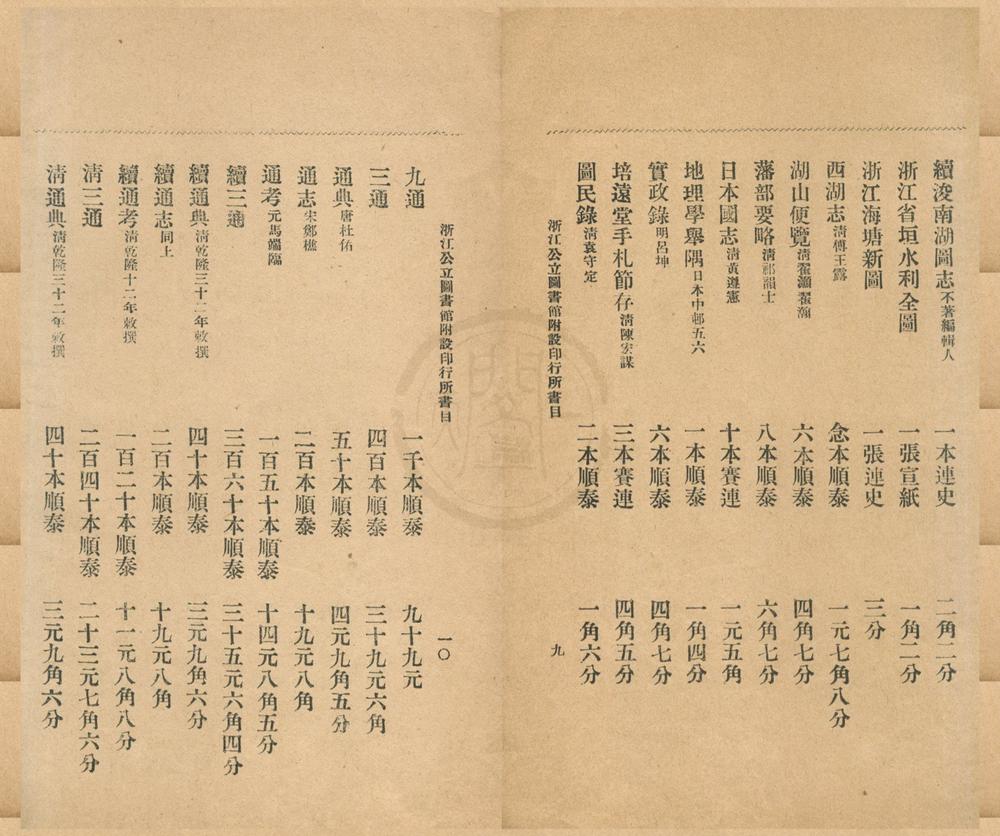 續浚南湖圖志 不著編輯人 一本連史 二角二分
浙江省垣水利全圖 一張宣紙 一角二分
浙江海塘新圖 一張連史 三分
西湖志 清傅王露 念本順泰 一元七角八分
湖山便覽 清翟灝翟瀚 六本順泰 四角七分
藩部要略 清祁韻士 八本順泰 六角七分
日本國志 清黃遵憲 十本賽連 一元五角
地理學舉隅 日本中邨五六 一本順泰 一角四分
實政錄 明呂坤 六本順泰 四角七分
培遠堂手札節存 清陳宏謀 三本賽連 四角五分
圖民錄 清袁守定 二本順泰 一角六分
浙江公立圖書館附設印行所書目 九
浙江公立圖書館附設印行所書目 一〇
九通 一千本順泰 九十九元
三通 四百本順泰 三十九元六角
通典 唐杜佑 五十本順泰 四元九角五分
通志 宋鄭樵 二百本順泰 十九元八角
通考 元馬端臨 一百五十本順泰 十四元八角五分
續三通 三百六十本順泰 三十五元六角四分
續通典 清乾隆三十二年敕撰 四十本順泰 三元九角六分
續通志 同上 二百本順泰 十九元八角
續通考 清乾隆十二年敕撰 一百二十本順泰 十一元八角八分
清三通 二百四十本順泰 二十三元七角六分
清通典 清乾隆三十二年敕撰 四十本順泰 三元九角六分